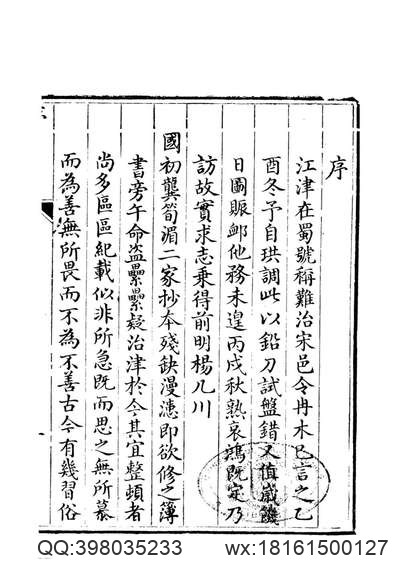 序
江津在蜀號稱難治宋邑令冉木已言之乙
酉冬予自珙調此以鉛刀試盤錯又值歲饑
日圖賑卹他務未遑丙戌秋熟哀鴻既定乃
訪故實求志乗得前明楊几川
國初龔筍湄二家抄本殘缺漫漶即欲修之簿
書旁午命盜纍纍疑治津於今其宜整頓者
尚多區區紀載似非所急既而思之無所慕
而為善無所畏而不為不善古今有幾習俗
QQ:398035233 wx:18161500127